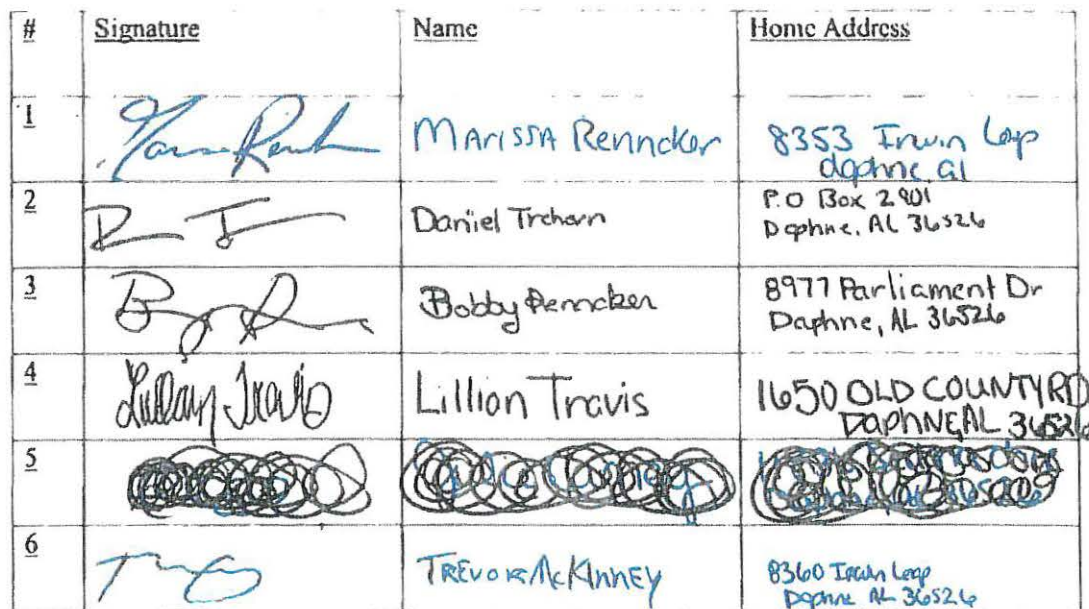 # Signature Name Home Address
1 MARISSA Renncker 8353 Irwin Loop
daphne al
2 Daniel Trehern P.O Box 2901
Daphne, AL 36526
3 Bobby Renncker 8977 Parliament Dr
Daphne, AL 36526
4 Lillian Travis Lillian Travis 1650 OLD COUNTY RD
DAPHNE, AL 36526
5
6 TREVOR McKINNEY 8360 Irwin Loop
Daphne AL 36526